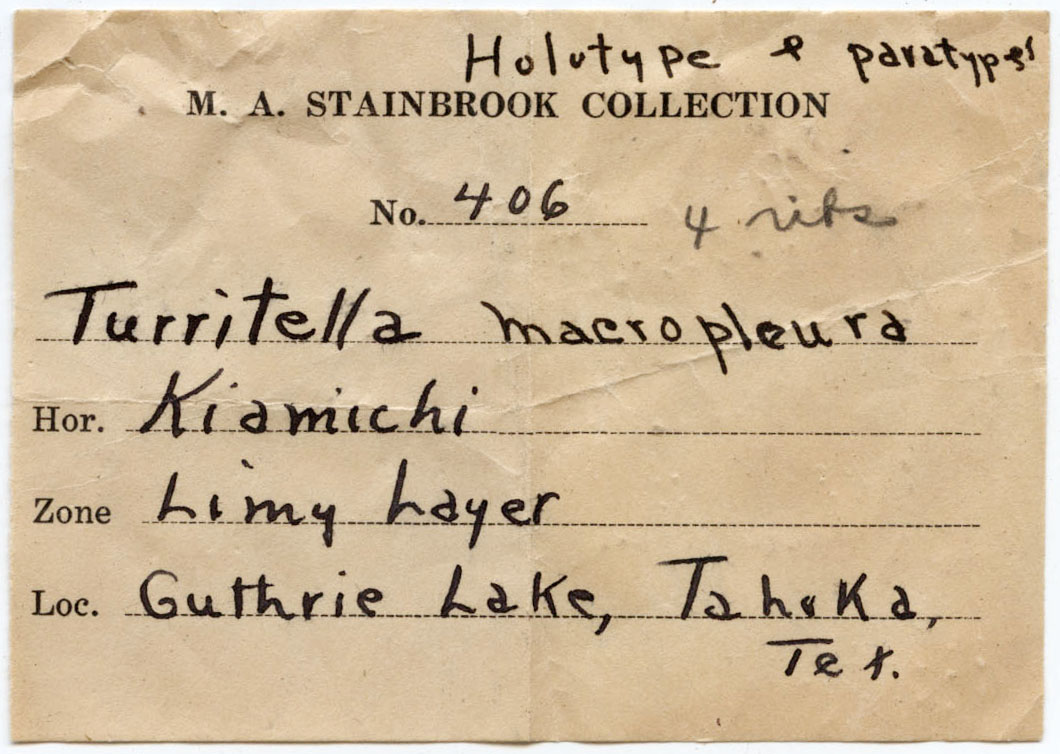 Holotype & paratypes
M. A. STAINBROOK COLLECTION
No. 406 4 ribs
Turritella macropleura
Hor. Kiamichi
Zone Limy Layer
Loc. Guthrie Lake, Tahoka,
Tex.